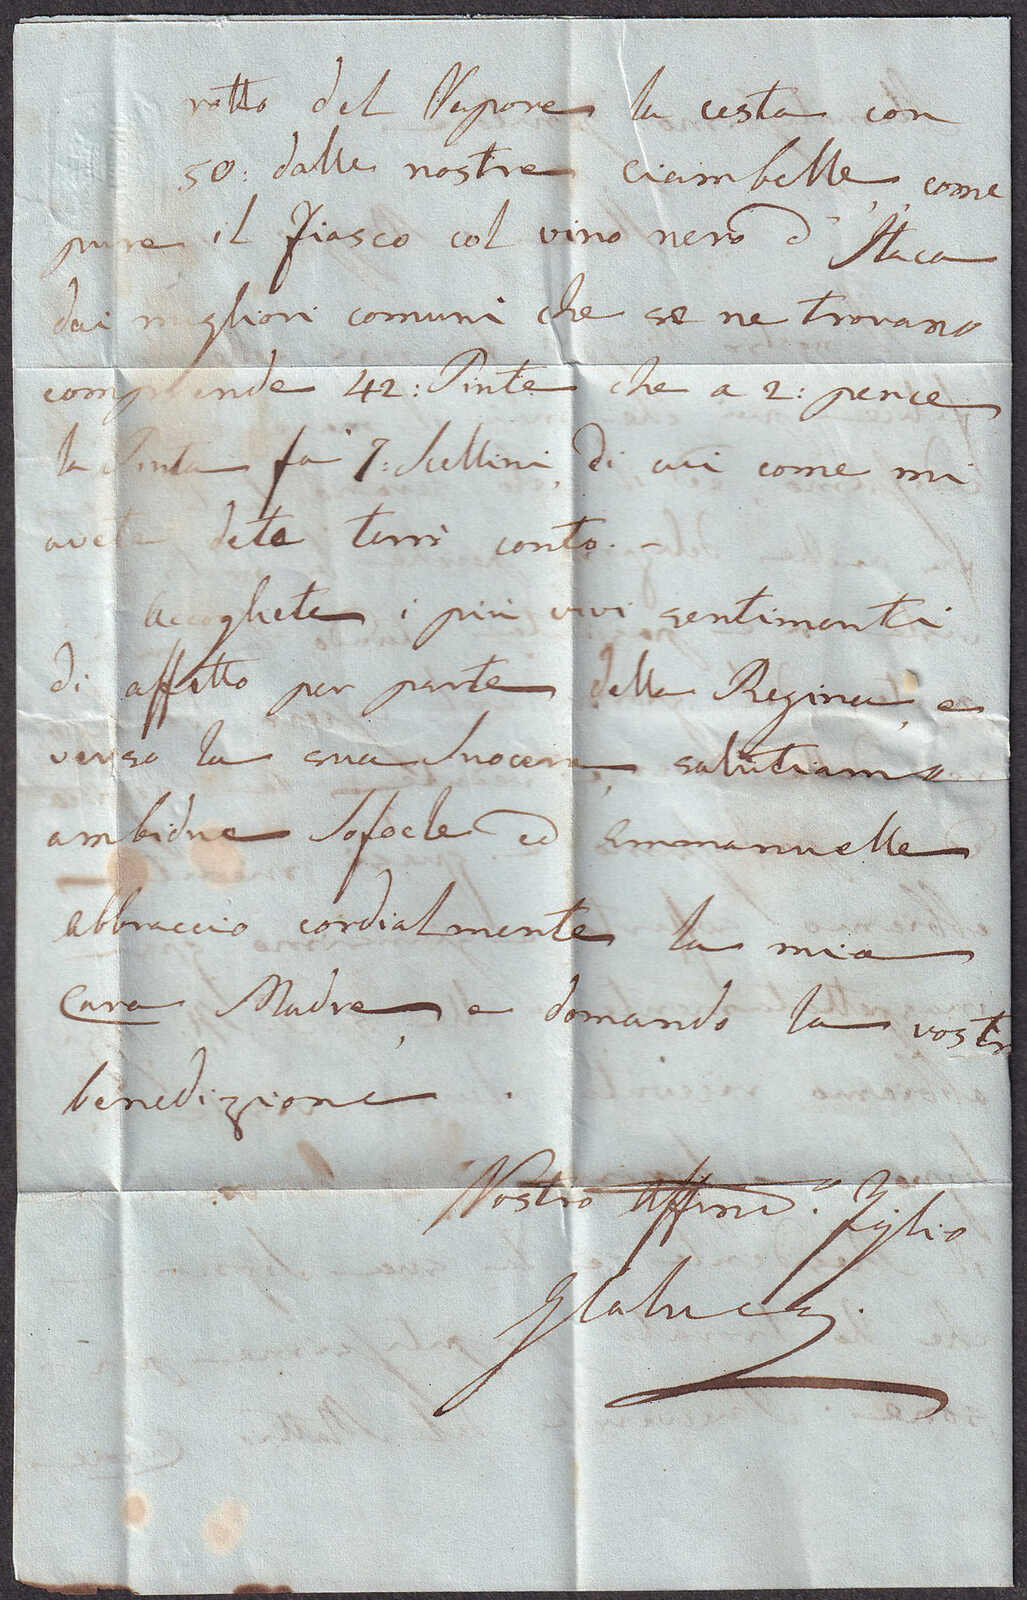 notto del Vapore la cesta con
50: dalle nostre ciambelle, come
pure il fiasco col vino nero d' Itaca
dai migliori comuni che se ne trovano
comprende 42: Pinte che a 2: pence
la Pinta fa 7: Scellini, di cui come mi
avete dete terrò conto. -
Accogliete i più vivi sentimenti
di affetto per parte della Regina, e
verso la sua Suocera, salutiamo
ambidue Sofocle ed Emmanuelle
abbraccio cordialmente la mia
Cara Madre, e domando la vostr
benedizione.
Vostro Affmo. Figlio